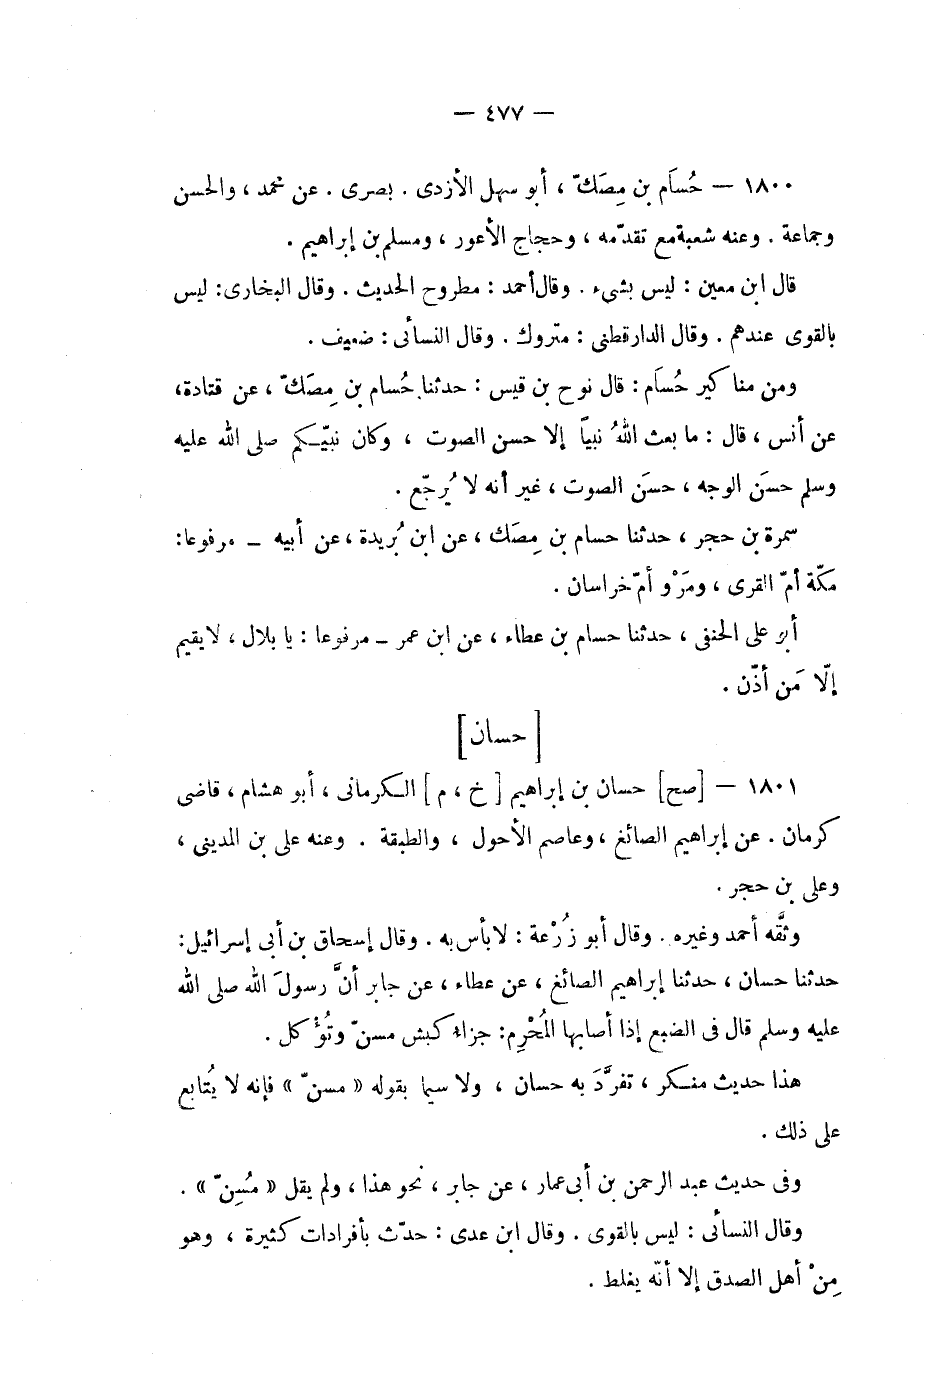 — ٤٧٧ —
١٨٠٠ — حُسَام بن مِصَكّ ، أبو سهل الأزدى . بصرى . عن محمد ، والحسن
وجماعة . وعنه شعبة مع تقدّمه ، وحجاج الأعور ، ومسلم بن إبراهيم .
قال ابن معين : ليس بشىء . وقال أحمد : مطروح الحديث . وقال البخارى : ليس
بالقوى عندهم . وقال الدارقطنى : متروك . وقال النسائى : ضعيف .
ومن مناكير حُسَام : قال نوح بن قيس : حدثنا حُسام بن مِصَكّ ، عن قتادة ،
عن أنس ، قال : ما بعث اللهُ نبيًّا إلا حسن الصوت ، وكان نبيّكم صلى الله عليه
وسلم حسَن الوجه ، حسَن الصوت ، غير أنه لا يُرجّع .
سمرة بن حجر ، حدثنا حسام بن مِصَك ، عن ابن بُريدة ، عن أبيه — مرفوعا :
مكّة أمّ القرى ، ومَرْو أمّ خراسان .
أبو على الحنفى ، حدثنا حسام بن عطاء ، عن ابن عمر — مرفوعا : يا بلال ، لا يقيم
إلّا مَن أذّن .
[ حسان ]
١٨٠١ — [صح] حسان بن إبراهيم [ خ ، م ] الكرمانى ، أبو هشام ، قاضى
كرمان . عن إبراهيم الصائغ ، وعاصم الأحول ، والطبقة . وعنه على بن المدينى ،
وعلى بن حجر .
وثقَّه أحمد وغيره . وقال أبو زُرْعة : لا بأس به . وقال إسحاق بن أبى إسرائيل :
حدثنا حسان ، حدثنا إبراهيم الصائغ ، عن عطاء ، عن جابر أنَّ رسولَ الله صلى الله
عليه وسلم قال فى الضبع إذا أصابها المُحْرِم : جزاءُ كبش مسنّ وتُؤْكل .
هذا حديث منكر ، تفرَّدَ به حسان ، ولا سيما بقوله « مسنّ » فإنه لا يُتابع
على ذلك .
وفى حديث عبد الرحمن بن أبى عمار ، عن جابر ، نحو هذا ، ولم يقل « مُسِنّ » .
وقال النسائى : ليس بالقوى . وقال ابن عدى : حدّث بأفرادات كثيرة ، وهو
مِنْ أهل الصدق إلا أنّه يغلط .